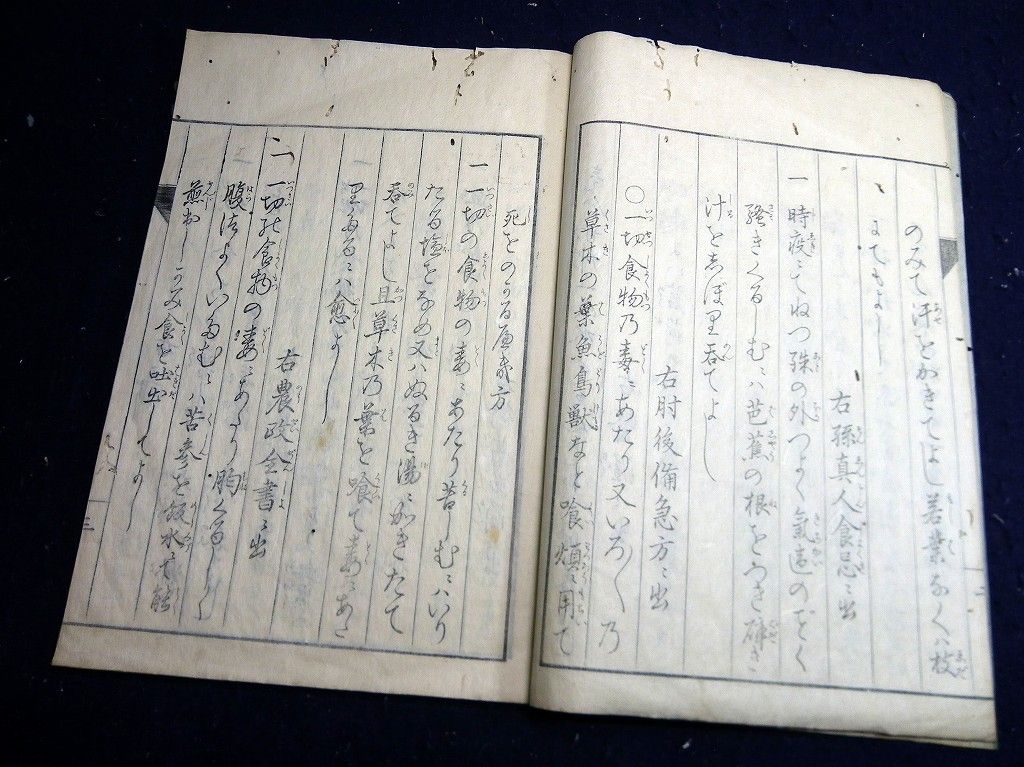 のみて汗をかきてよし若葉なくハ枝
にてもよし
右孫真人食忌ニ出
一 時疫ニてねつ殊の外つよく氣違のごとく
騒きくるしむニハ芭蕉の根をつき砕き
汁をしぼり呑てよし
右肘後備急方ニ出
〇一切食物乃毒ニあたり又いろ〳〵乃
草木の葉魚鳥獣なと喰煩ニ用て
死をのかるゝ方
一 一切の食物の毒ニあたり苦しむニハいり
たる塩をなめ又ハぬるき湯ニかきたて
呑てよし且草木乃葉を喰て毒ニあた
りたるニハ愈よし
右農政全書ニ出
一 一切の食物の毒ニあたり胸くるしく
腹はりいたむニハ苦参を水にて能
煎出しのみ食を吐出してよし
三